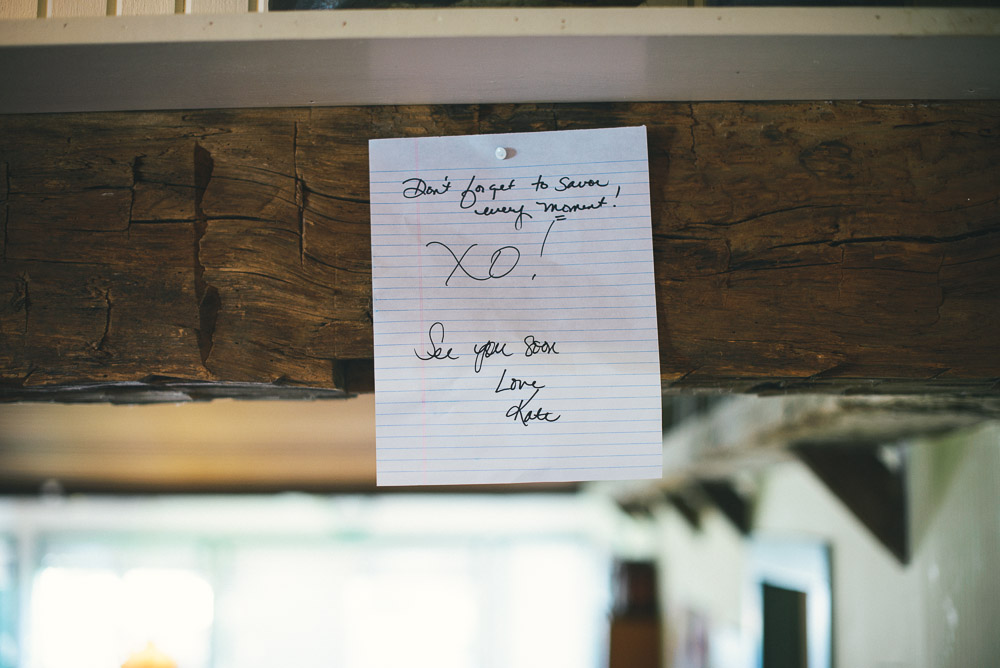 Don't forget to savor
every moment!
XO!
See you soon
Love
Kate